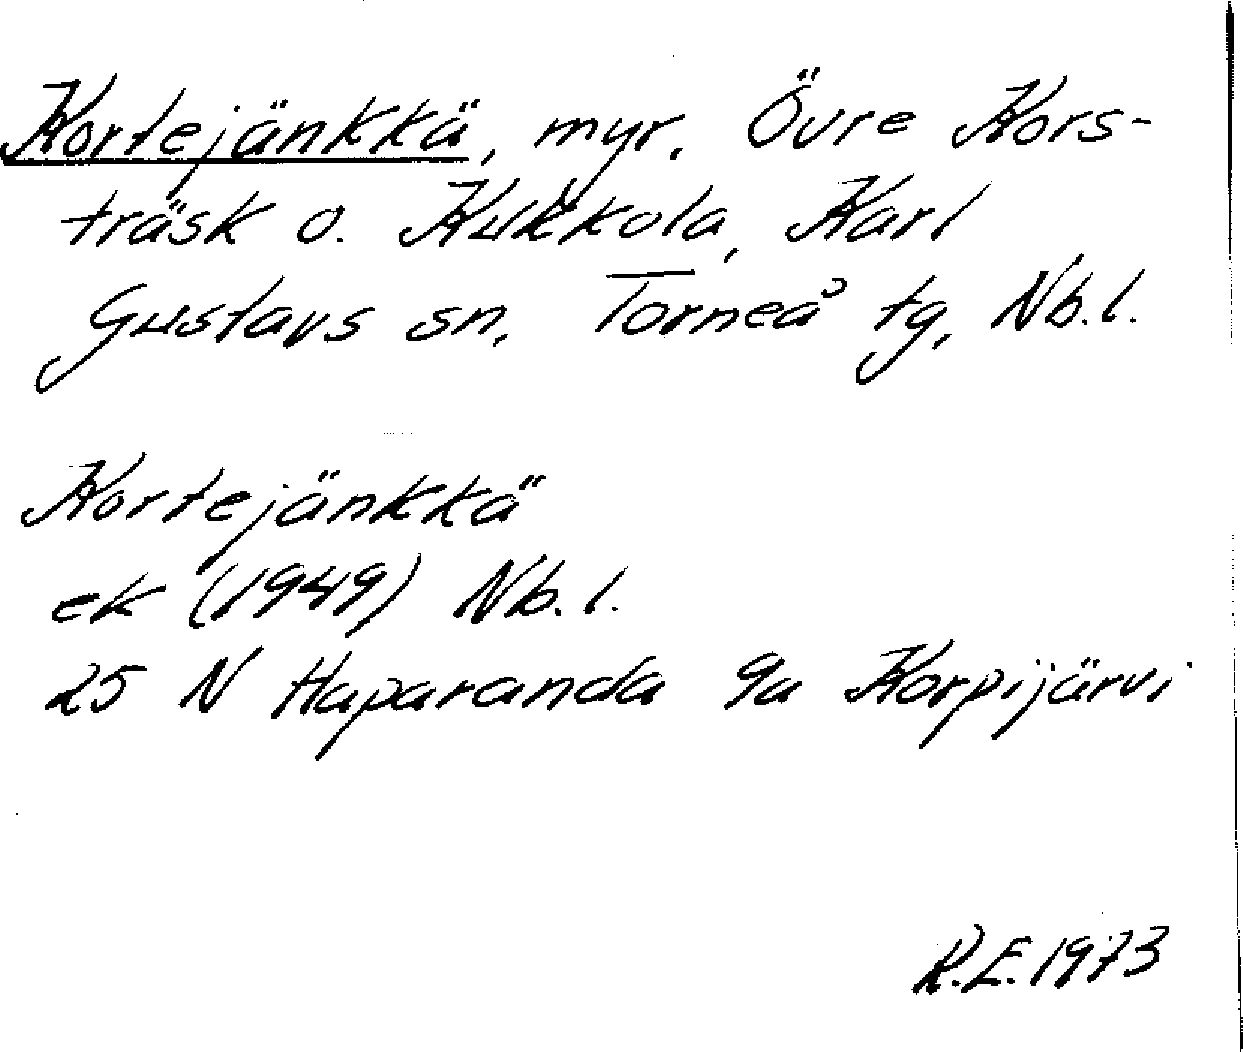 Kortejänkkä, myr, Övre Kors-
träsk o. Kukkola, Karl
Gustavs sn, Torneå tg, Nb.l.
Kortejänkkä
ek (1949) Nb.l.
25 N Haparanda 9a Korpijärvi
R.E. 1973